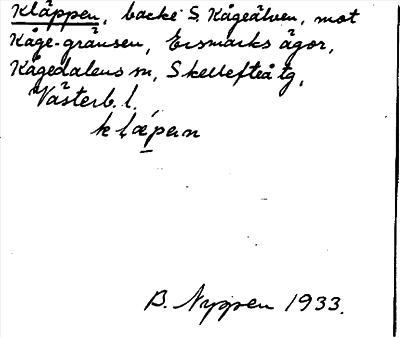 Kläppen, backe S. Kågeälven, mot
Kåge-gränsen, Ersmarks ägor,
Kågedalens sn, Skellefteå tg,
Västerb. l.
klæpεn
B. Nygren 1933.